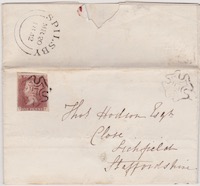 SPILSBY
Thos Hodson Esqr
Close
Lichfield
Staffordshire